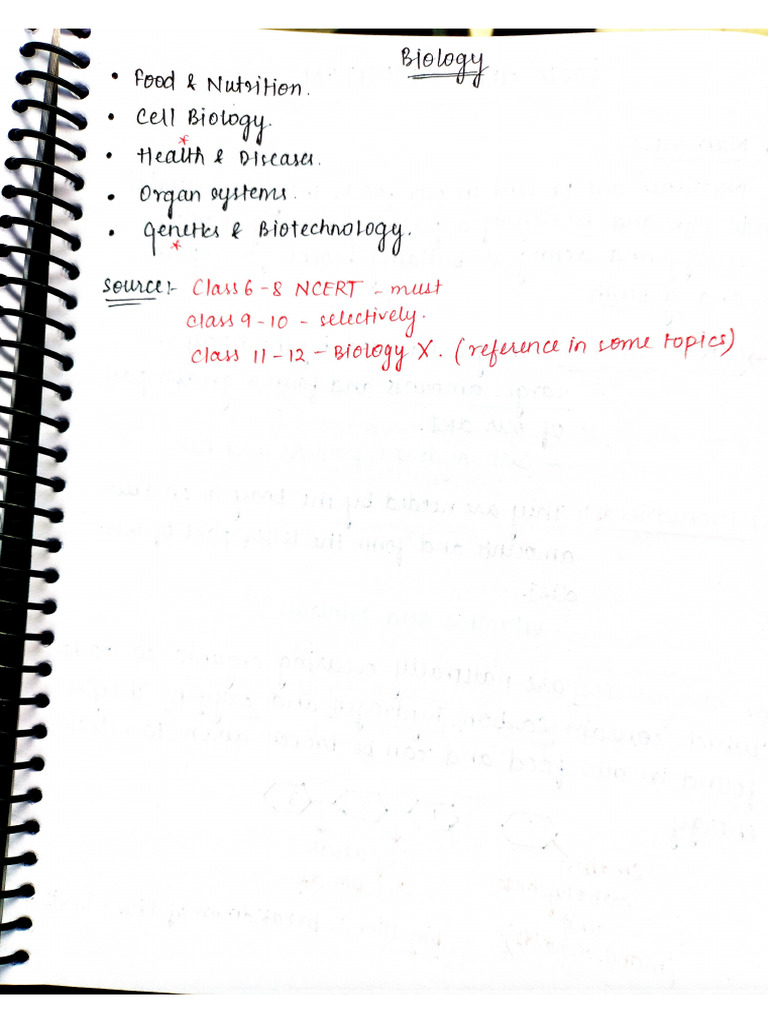 Biology
• Food & Nutrition.
• Cell Biology.
*
• Health & Diseases.
• Organ systems.
• Genetics & Biotechnology.
*
Source:- Class 6-8 NCERT - must
Class 9-10 - selectively.
Class 11-12 - Biology X. (reference in some topics)